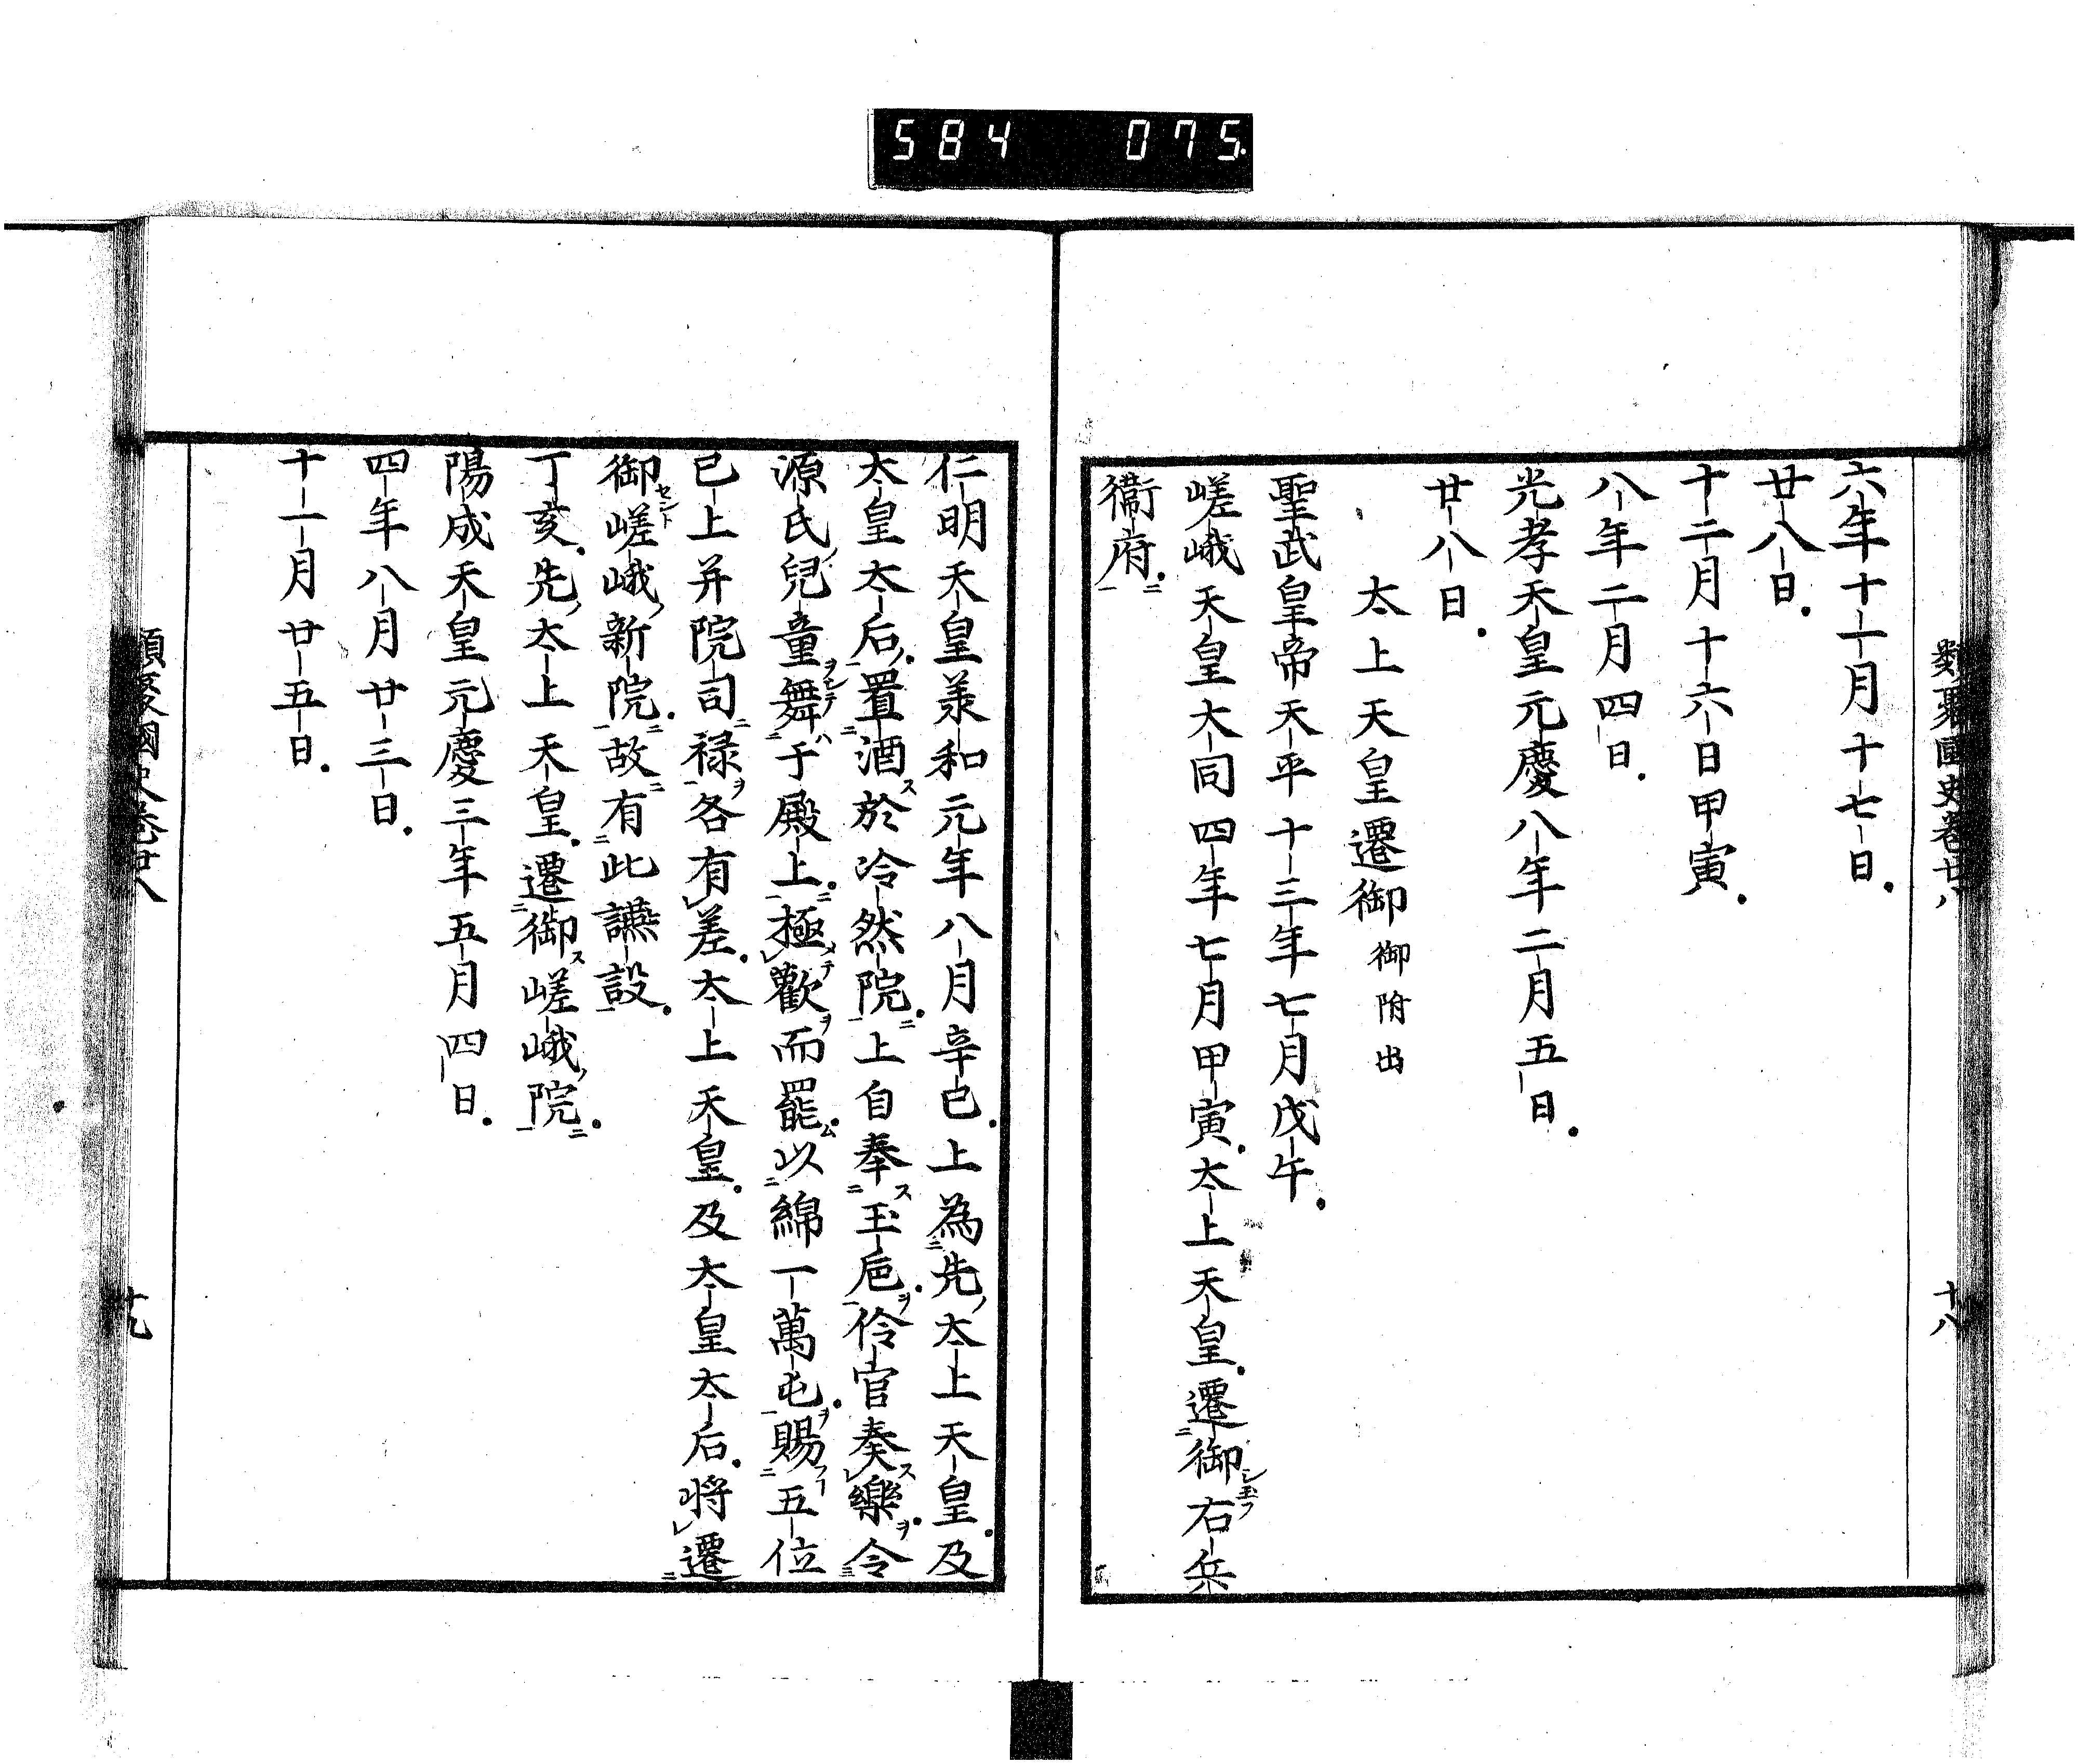 584 075
類聚國史卷廿八
十八
六年十一月十七日
廿八日
十二月十六日甲寅
八年二月四日
光孝天皇元慶八年二月五日
廿八日
太上天皇遷御 御附出
聖武皇帝天平十三年七月戊午
嵯峨天皇大同四年七月甲寅太上天皇遷御右兵
衞府
仁明天皇羕和元年八月辛巳上為先太上天皇及
太皇太后置酒於冷然院上自奉玉巵伶官奏樂令
源氏兒童舞于殿上極歡而罷以綿一萬屯賜五位
已上并院司祿各有差太上天皇及太皇太后將遷
御嵯峨新院故有此讌設
丁亥先太上天皇遷御嵯峨院
陽成天皇元慶三年五月四日
四年八月廿三日
十一月廿五日
類聚國史卷廿八